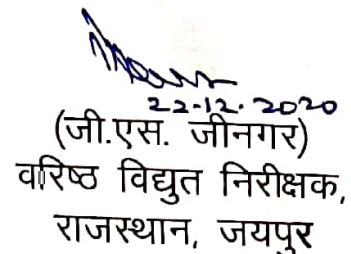 22-12-2020
(जी.एस. जीनगर)
वरिष्ठ विद्युत निरीक्षक,
राजस्थान, जयपुर